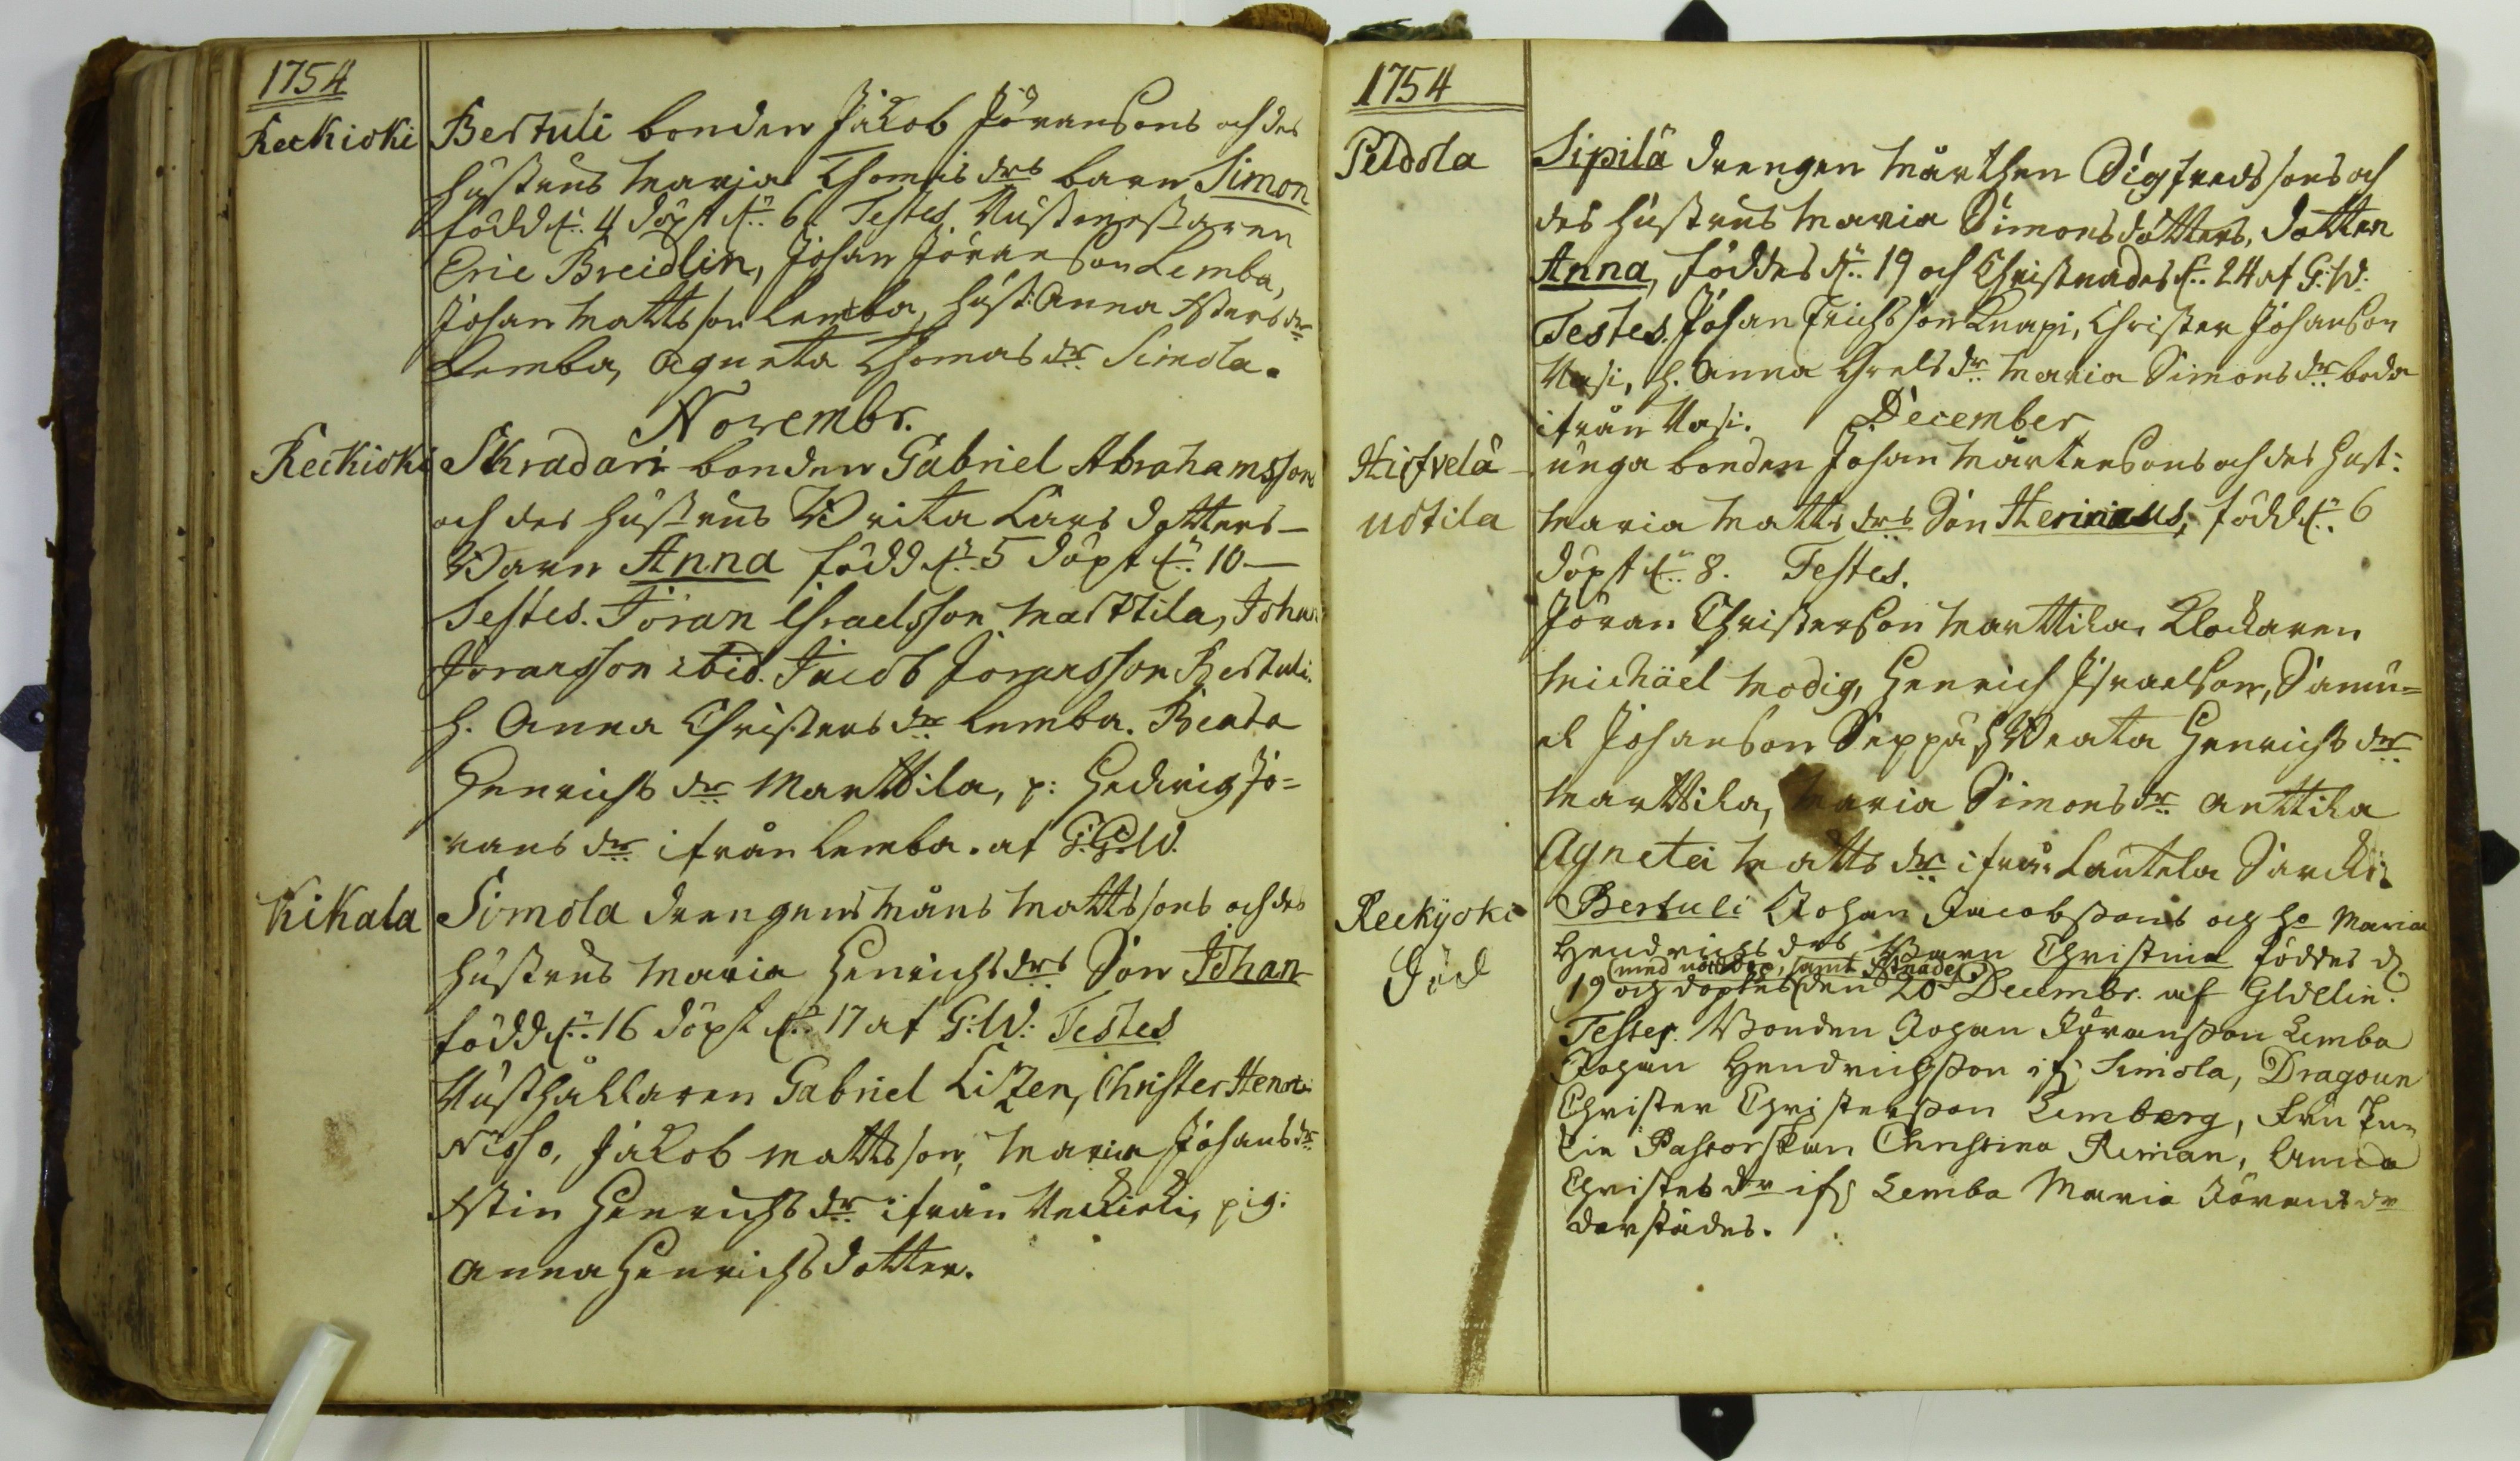 1754
Reckioki Bertuli bonden Jacob Jöransons och des
hustrus Maria Thomæ drs barn Simon
född d. 4 döpt d. 6. Testes. Rustmästaren
Eric Breidlin, Johan Jöranson Lemba,
Johan Mattsson Lemba, hust: Anna dr
Lemba, Agneta Thomas dr Simola.
Novembr.
Reckioki Skradari bonden Gabriel Abrahamssons
och des hustrus Brita Lars dotters
Barn Anna född d. 5 döpt d. 10
Testes. Jöran Israelsson Marttila, Johan
Joransson ibid. Jacob Joransson Bertuli.
h. Anna Christers dr Lemba. Beata
Henrichs dr Marttila, p: Hedwig Jö=
rans dr ifrån Lemba. af G.W.
Kikala Simola drengens Måns Mattssons och des
hustrus Maria Henrichs drs Son Johan
född d. 16 döpt d. 17 af G:W: Testes
Rusthållaren Gabriel Lizen, Christer Henr:
Nisso, Jacob Mattsson, Maria Johans dr
Stin Henrichs dr ifrån Reckioki, pig:
Anna Henrichs dotter.
1754
Peldola Sipilä drengen Mårthen Sigfredssons och
des hustrus Maria Simons dotters, dotter
Anna, föddes d. 19 och Christnades d. 24 af G:W:
Testes. Johan Erichsson Knapi, Christer Johanson
Uusi, h. Anna Grels dr Maria Simons dr boda
ifrån Uusi. December
Hirfvelä unga bonden Johan Mårtensons och des hust:
uotila Maria Matts drs Son Henricus, född d. 6
döpt d. 8. Testes.
Jöran Christerson Marttila, Klockaren
Michäel Modig, Henrich Israelson, Samu=
el Johanson Seppä, h Beata Henrichs dr
Marttila, Maria Simons dr Anttila
Agneta Matts dr ifrån Lautela Särcki.
Reckyoki Bertuli Johan Jacobssons och ho Maria
Död Hendrichs drs Barn Christina föddes d
(med nöddop, samt
19 och döptes den 20 Decembr. af GWelin.
Testes. Bonden Johan Jöransson Lemba
Johan Hendrichsson if: Simola, Dragoun
Christer Christersson Lemberg, Fru
Pastorskan Christina Reman, Anna
Christers dr if: Lemba Maria Jörans dr
derstädes.